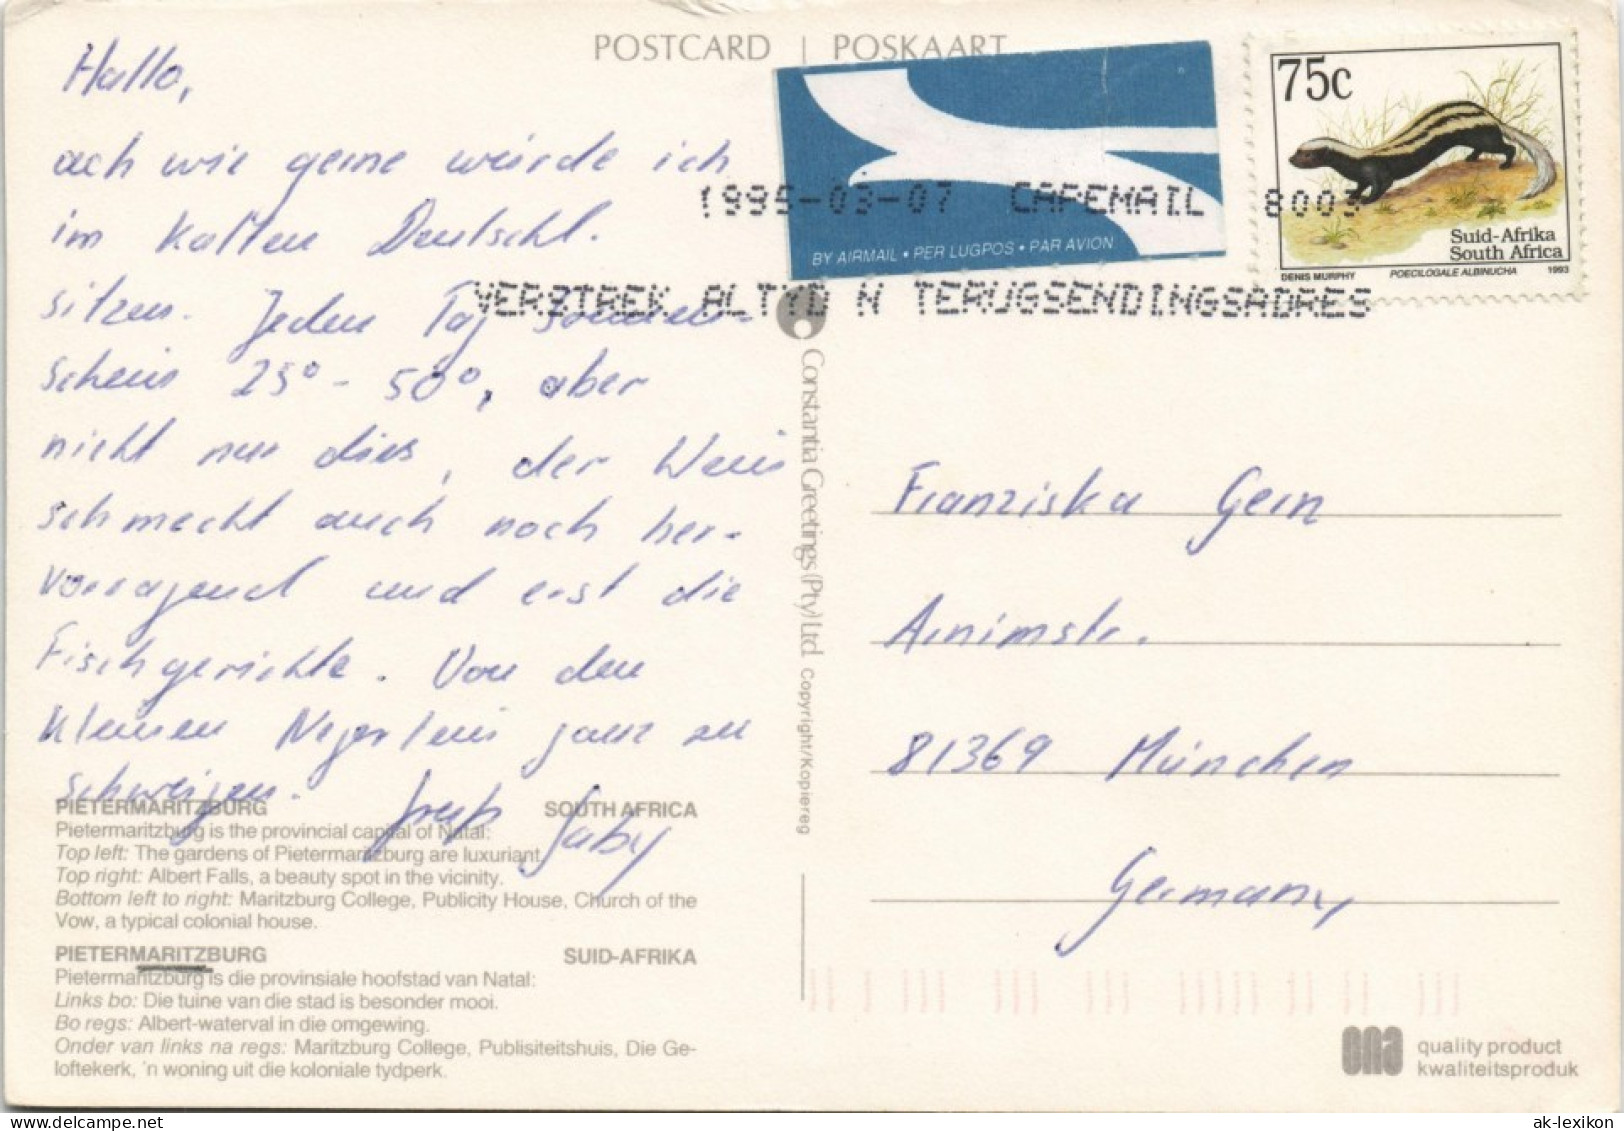 POSTCARD | POSKAART
Hallo,
ach wie gerne würde ich
im kalten Deutschl.
sitzen. Jeden Tag Sonnen-
schein 25° - 50°, aber
nicht nur dies, der Wein
schmeckt auch noch her-
vorragend und erst die
Fischgerichte. Von den
kleinen Negerlein ganz zu
schweigen. Gaby
BY AIRMAIL • PER LUGPOS • PAR AVION
75c
Suid-Afrika
South Africa
DENIS MURPHY POECILOGALE ALBINUCHA 1993
1995-03-07 CAPEMAIL 8003
VERSTREK ALTYD N TERUGSENDINGSADRES
Constantia Greetings (Pty) Ltd. Copyright/Kopiereg
Franziska Gern
Arnimstr.
81369 München
Germany
PIETERMARITZBURG SOUTH AFRICA
Pietermaritzburg is the provincial capital of Natal:
Top left: The gardens of Pietermaritzburg are luxuriant.
Top right: Albert Falls, a beauty spot in the vicinity.
Bottom left to right: Maritzburg College, Publicity House, Church of the
Vow, a typical colonial house.
PIETERMARITZBURG SUID-AFRIKA
Pietermaritzburg is die provinsiale hoofstad van Natal:
Links bo: Die tuine van die stad is besonder mooi.
Bo regs: Albert-waterval in die omgewing.
Onder van links na regs: Maritzburg College, Publisiteitshuis, Die Ge-
loftekerk, 'n woning uit die koloniale tydperk.
quality product
kwaliteitsproduk
ak-lexikon